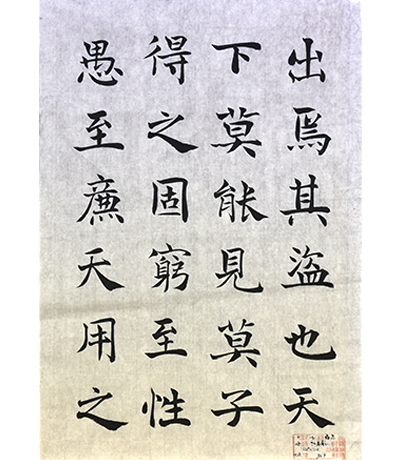 出焉其盜也天
下莫能見莫子
得之固窮至性
愚至廉天用之